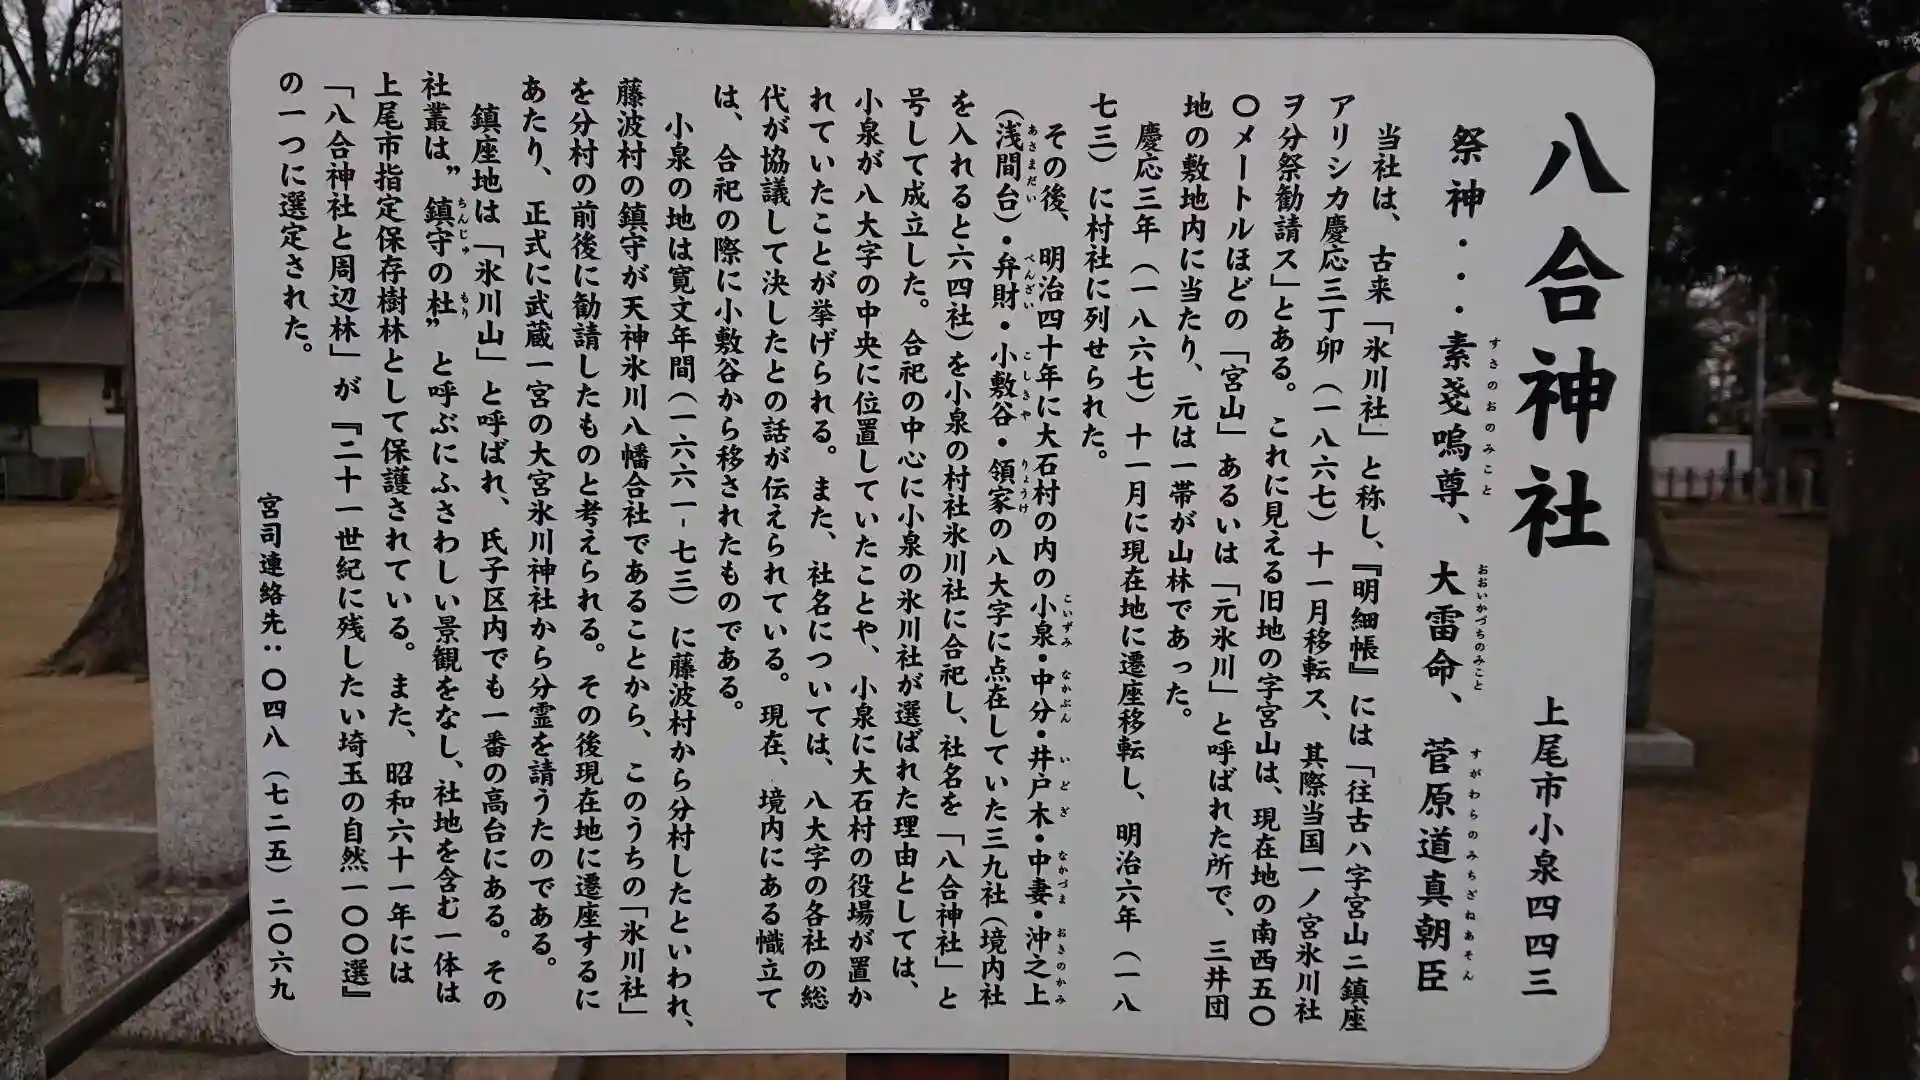 八合神社
上尾市小泉四四三
祭神・・・素戔嗚尊、大雷命、菅原道真朝臣
すさのおのみこと
おおいかづちのみこと
すがわらのみちざねあそん
当社は、古来「氷川社」と称し、『明細帳』には「往古ハ字宮山ニ鎮座
アリシカ慶応三丁卯（一八六七）十一月移転ス、其際当国一ノ宮氷川社
ヲ分祭勧請ス」とある。これに見える旧地の字宮山は、現在地の南西五〇
〇メートルほどの「宮山」あるいは「元氷川」と呼ばれた所で、三井団
地の敷地内に当たり、元は一帯が山林であった。
慶応三年（一八六七）十一月に現在地に遷座移転し、明治六年（一八
七三）に村社に列せられた。
その後、明治四十年に大石村の内の小泉・中分・井戸木・中妻・沖之上
こいずみ
なかぶん
いどぎ
なかづま
おきのかみ
（浅間台）・弁財・小敷谷・領家の八大字に点在していた三九社（境内社
あさまだい
べんざい
こしきや
りょうけ
を入れると六四社）を小泉の村社氷川社に合祀し、社名を「八合神社」と
号して成立した。合祀の中心に小泉の氷川社が選ばれた理由としては、
小泉が八大字の中央に位置していたことや、小泉に大石村の役場が置か
れていたことが挙げられる。また、社名については、八大字の各社の総
代が協議して決したとの話が伝えられている。現在、境内にある幟立て
は、合祀の際に小敷谷から移されたものである。
小泉の地は寛文年間（一六六一-七三）に藤波村から分村したといわれ、
藤波村の鎮守が天神氷川八幡合社であることから、このうちの「氷川社」
を分村の前後に勧請したものと考えられる。その後現在地に遷座するに
あたり、正式に武蔵一宮の大宮氷川神社から分霊を請うたのである。
鎮座地は「氷川山」と呼ばれ、氏子区内でも一番の高台にある。その
社叢は〝鎮守の杜〟と呼ぶにふさわしい景観をなし、社地を含む一体は
ちんじゅ
もり
上尾市指定保存樹林として保護されている。また、昭和六十一年には
「八合神社と周辺林」が『二十一世紀に残したい埼玉の自然一〇〇選』
の一つに選定された。
宮司連絡先：〇四八（七二五）二〇六九